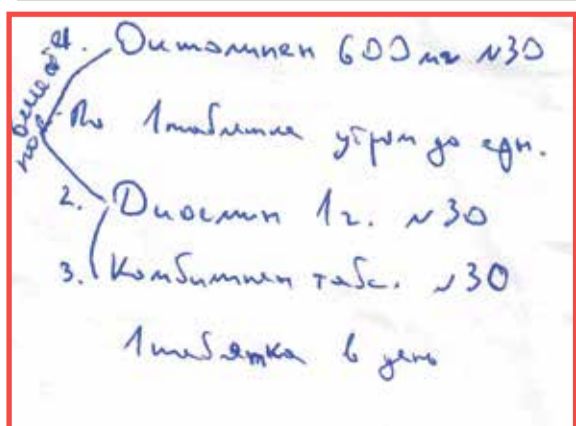 1. Октолипен 600 мг N30
По 1 таблетке утром до еды.
2. Диосмин 1 г. N30
3. Комбилипен табс. N30
1 таблетка в день